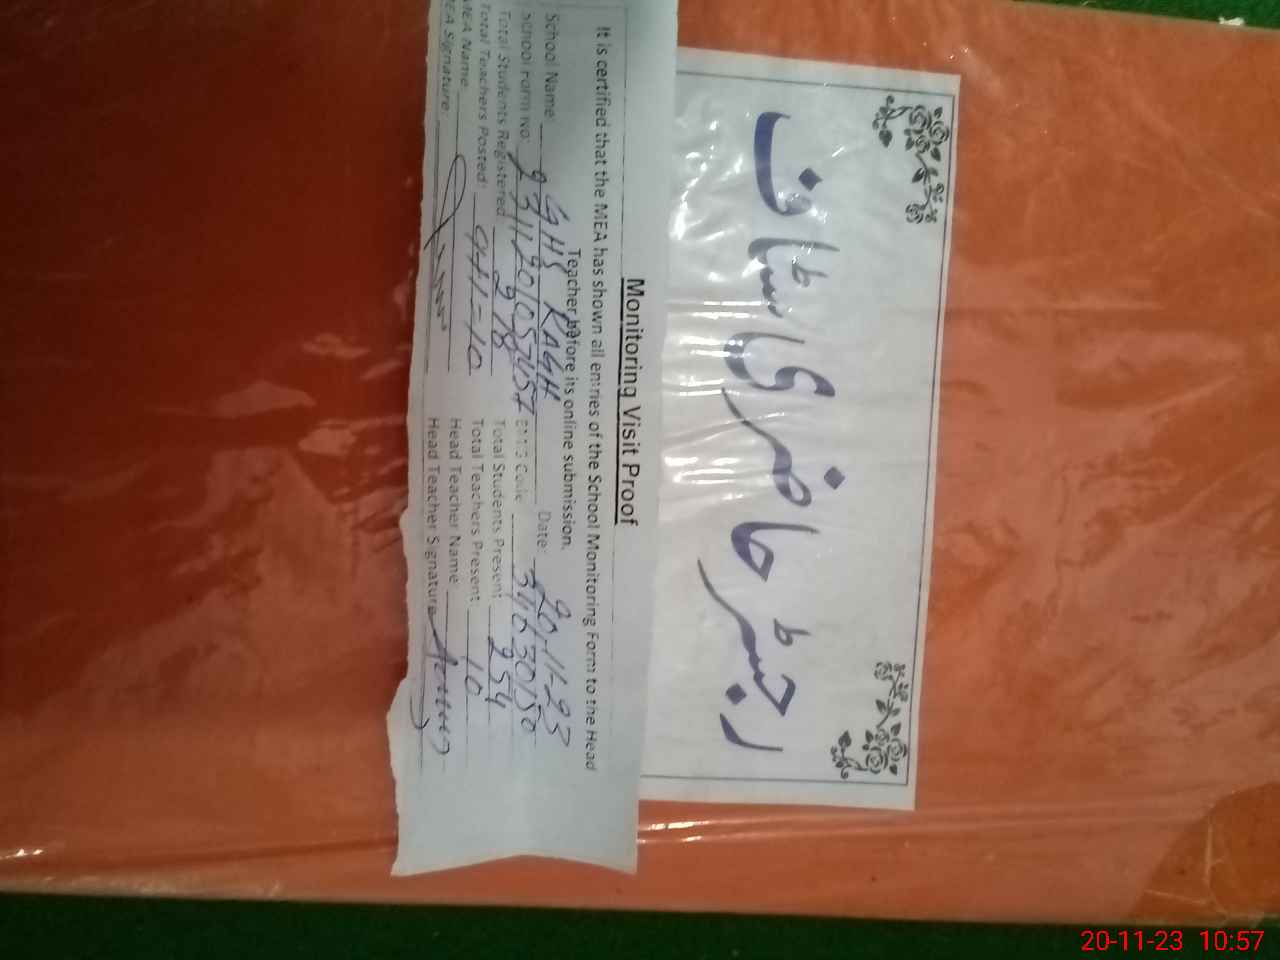 رجسٹر حاضری سٹاف
Monitoring Visit Proof
It is certified that the MEA has shown all entries of the School Monitoring Form to the Head
Teacher before its online submission.
School Name: GHS RAGH Date: 20-11-23
School Form No: EMIS Code 31630150
Total Students Registered 278 Total Students Present 254
Total Teachers Posted: 9+1=10 Total Teachers Present 10
MEA Name Head Teacher Name
MEA Signature: Head Teacher Signature
20-11-23 10:57